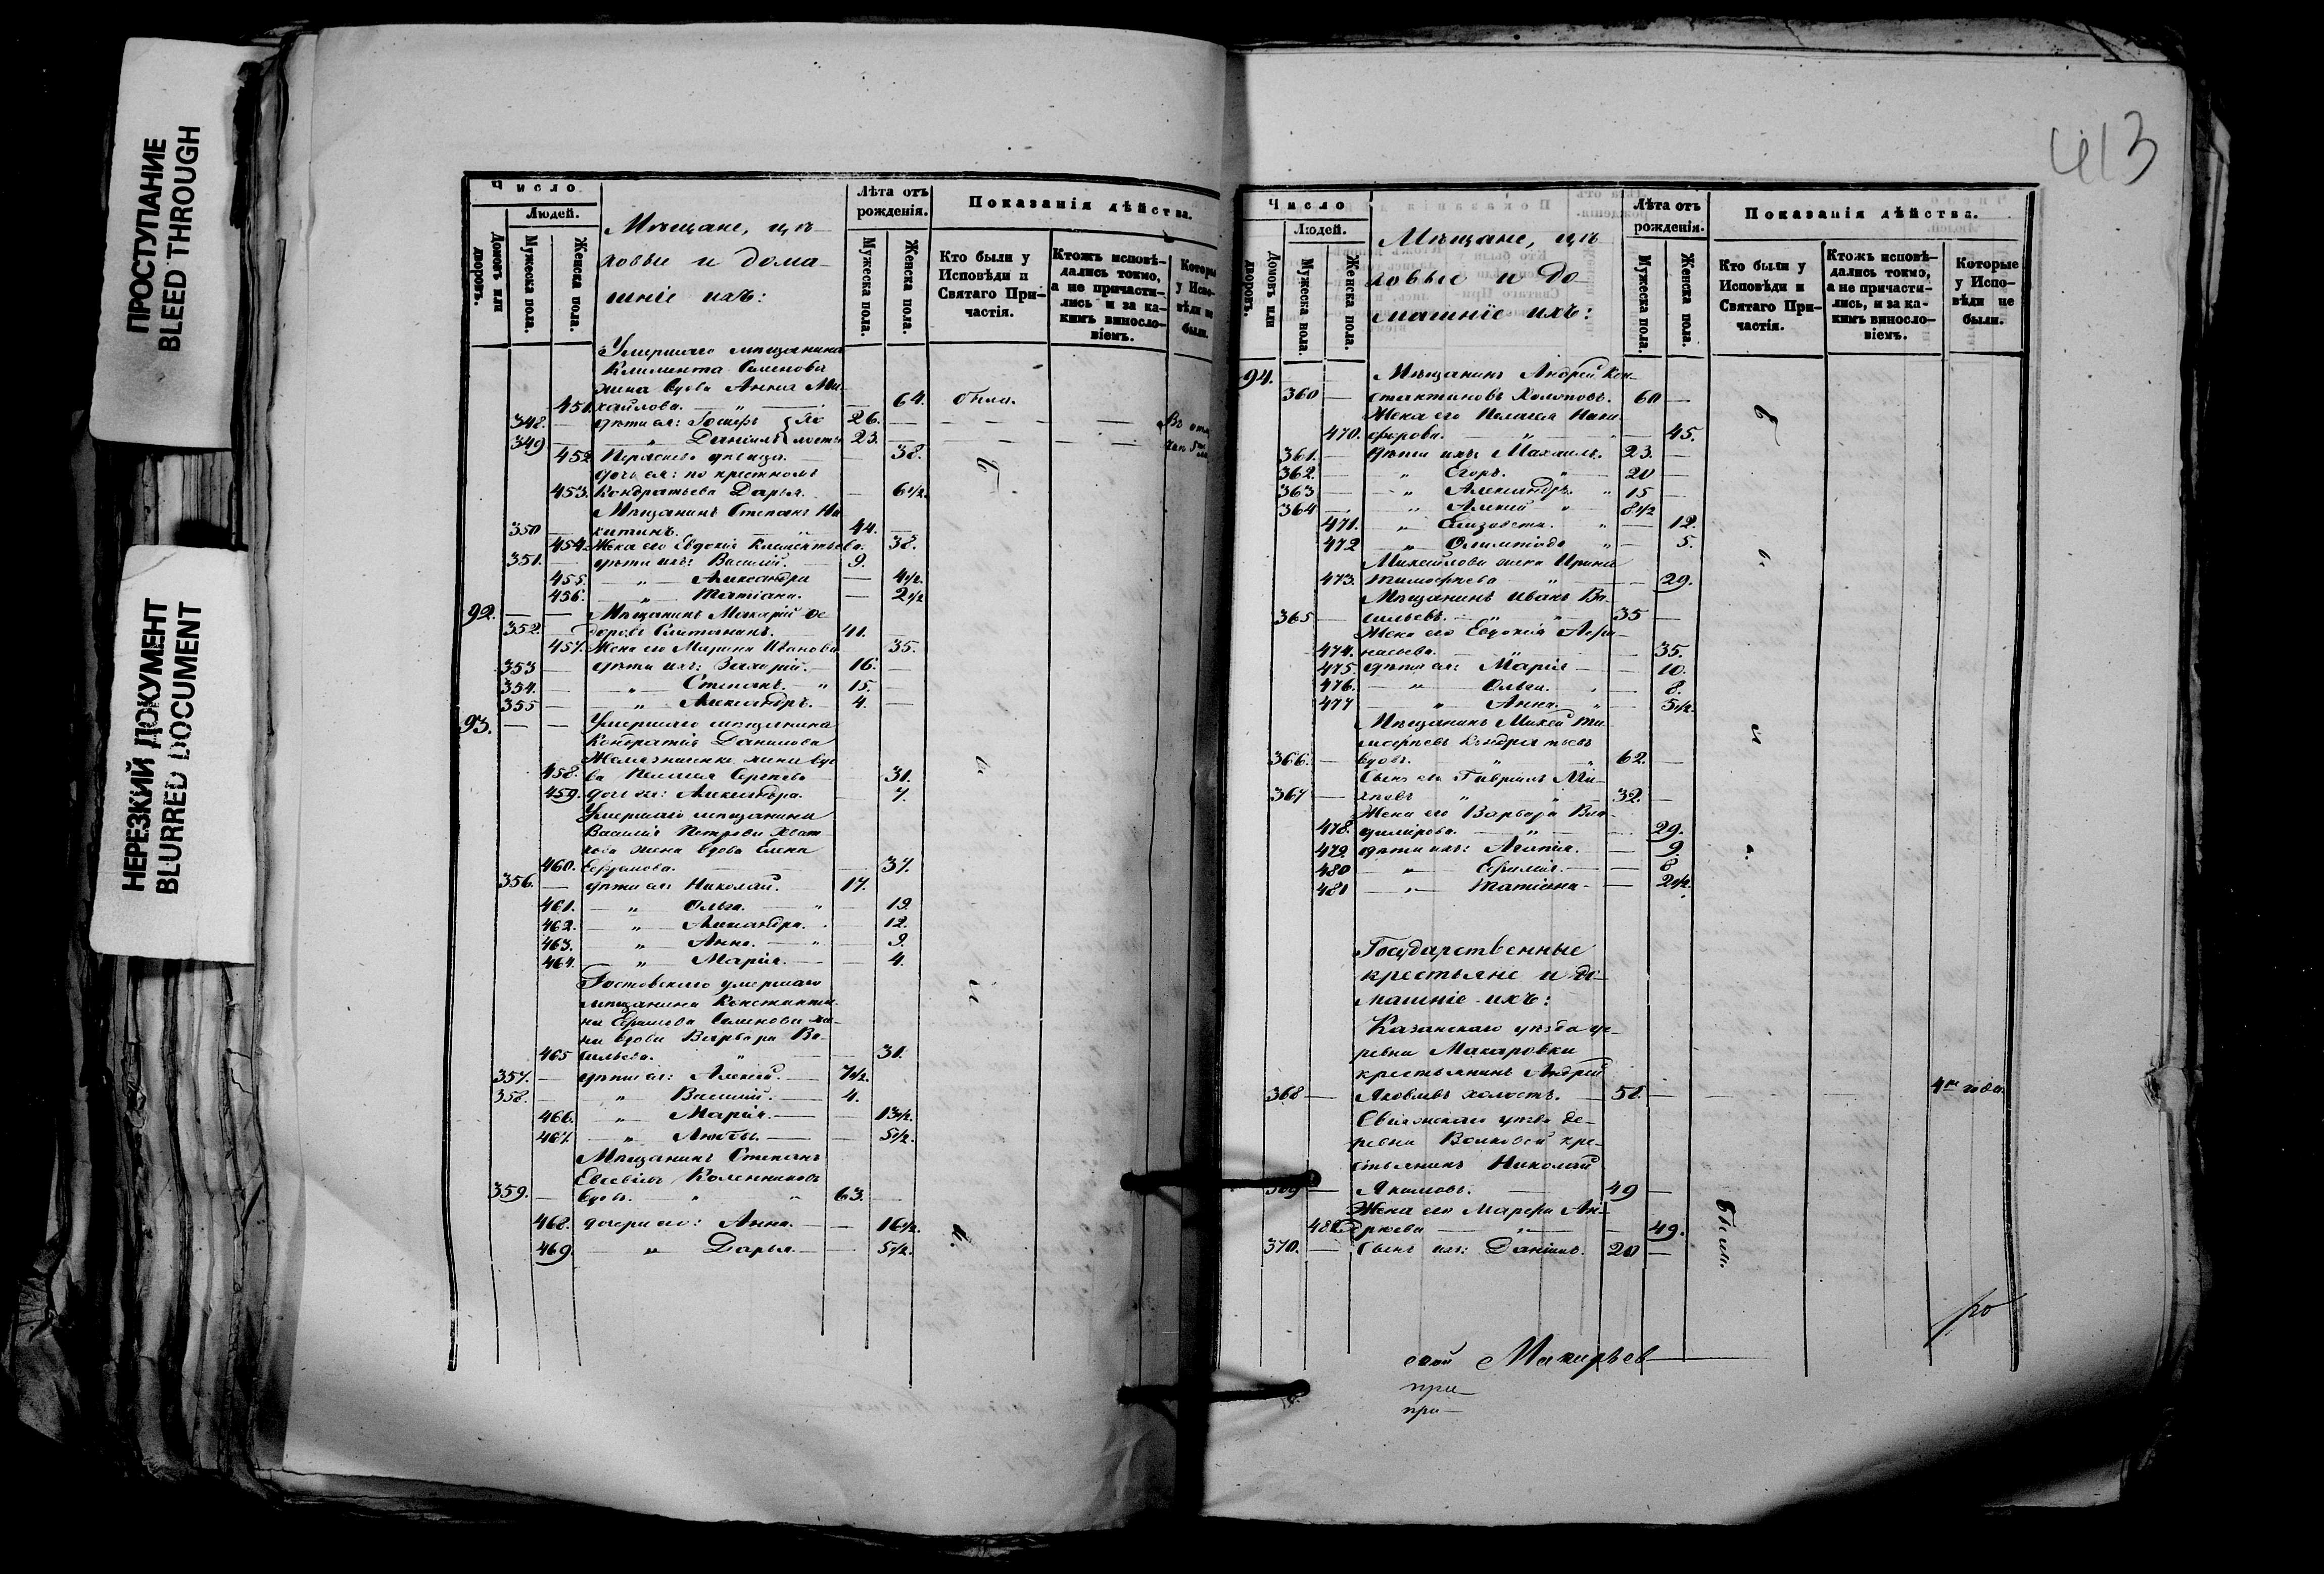 ПРОСТУПАНИЕ
BLEED THROUGH
НЕРЕЗКИЙ ДОКУМЕНТ
BLURRED DOCUMENT
Число
Людей.
Домовъ или дворовъ.
Мужеска пола.
Женска пола.
Мѣщане, цѣ-
ховые и дома-
шніе ихъ:
Лѣта отъ рожденія.
Мужеска пола.
Женска пола.
Показанія дѣйства.
Кто были у Исповѣди и Святаго При-частія.
Ктожъ исповѣ-дались токмо, а не причасти-лись и за ка-кимъ винос­ло-віемъ.
Умершаго мѣщанина
Климента Семенова
жена вдова Анна Ми-
451. хайлова. 64. была.
348. дѣти ея: Іосифъ 26.
349 Даніилъ 23.
452 38.
дочь ея: по крестномъ
453. Кондратьева Дарья. 6 1/2.
Мѣщанинъ Степанъ Ни-
350 китинъ. 44.
454. Жена его Евдокія Климентьева. 38.
351. дѣти ихъ: Василій. 9.
455. Александра 4 1/2.
456. Татіана. 2 1/2
92. Мѣщанинъ Макарій Ѳе-
352. доровъ 41.
457. Жена его Марина Иванова 35.
353 дѣти ихъ: Захарій. 16.
354. Степанъ. 15.
355 Александръ. 4.
93. Умершаго мѣщанина
Кондратія Данилова
жена вдо-
458. ва Пелагея Сергѣева 31.
459. дочь ея: Александра. 7.
Умершаго мѣщанина
Василія Петрова
жена вдова Елена
460. Ефремова. 37.
356. дѣти ея: Николай. 17.
461. Ольга. 19.
462. Александра. 12.
463. Анна. 9.
464. Марія. 4.
Ростовскаго умершаго
мѣщанина Константи-
на Семенова же-
на вдова Варвара Ва-
465 сильева. 31.
357. дѣти ея: Алексѣй. 7 1/2.
358. Василій. 4.
466. Марія. 13 1/2.
467. Любовь. 5 1/2.
Мѣщанинъ Степанъ
Евсевіевъ
359. вдовъ. 63.
468. дочери его: Анна. 16 1/2.
469. Дарья. 5 1/2.
413
Число
Людей.
Домовъ или дворовъ.
Мужеска пола.
Женска пола.
Мѣщане, цѣ-
ховые и до-
машніе ихъ:
Лѣта отъ рожденія.
Мужеска пола.
Женска пола.
Показанія дѣйства.
Кто были у Исповѣди и Святаго При-частія.
Ктожъ исповѣ-дались токмо, а не причасти-лись, и за ка-кимъ виносло-віемъ.
Которые у Испо-вѣди не были.
94. Мѣщанинъ Андрей Кон-
360 стантиновъ Холоповъ. 60
Жена его Пелагея Ники-
470. форова. 45.
361. дѣти ихъ: Михаилъ. 23.
362. Егоръ. 20
363 Александръ. 15
364 Алексѣй 8 1/2
471. Елизавета. 12.
472 Олимпіада 5.
Михайлова жена Ирина
473. Тимофѣева 29.
Мѣщанинъ Иванъ Ва-
365 сильевъ. 35
Жена его Евдокія Аѳа-
474. насьева. 35.
475. дѣти ея: Марія 10.
476. Ольга. 8.
477 Анна. 5 1/2.
Мѣщанинъ Михей Ти-
мофѣевъ Кондратьевъ
366. вдовъ. 62.
Сынъ его Гавріилъ Ми-
367 хѣевъ 32.
Жена его Варвара Вла-
478. димірова. 29.
479. дѣти ихъ: Агапія. 9.
480 Евфимія. 6
481 Татіана 2 1/2.
Государственные
крестьяне и до-
машніе ихъ:
Казанскаго уѣзда де-
ревни Макаровки
крестьянинъ Андрей
368 Яковлевъ холостъ. 51. 4 года.
Свіяжскаго уѣзда де-
ревни кре-
стьянинъ Николай
369 Акимовъ. 49
Жена его Марѳа Ан-
482 дреева 49.
370. Сынъ ихъ: Даніилъ. 20
были.
Макарьев
при
при